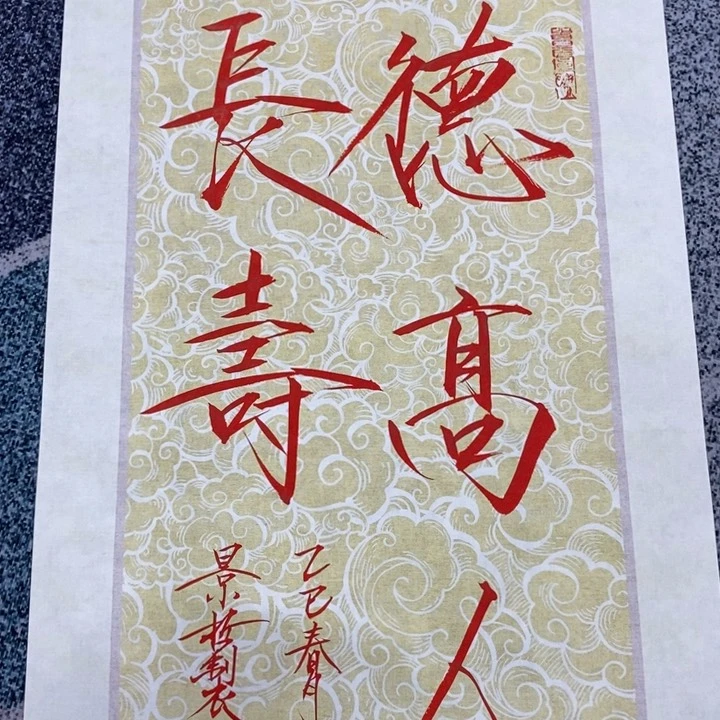 德高人
長壽
乙巳春月
景 製